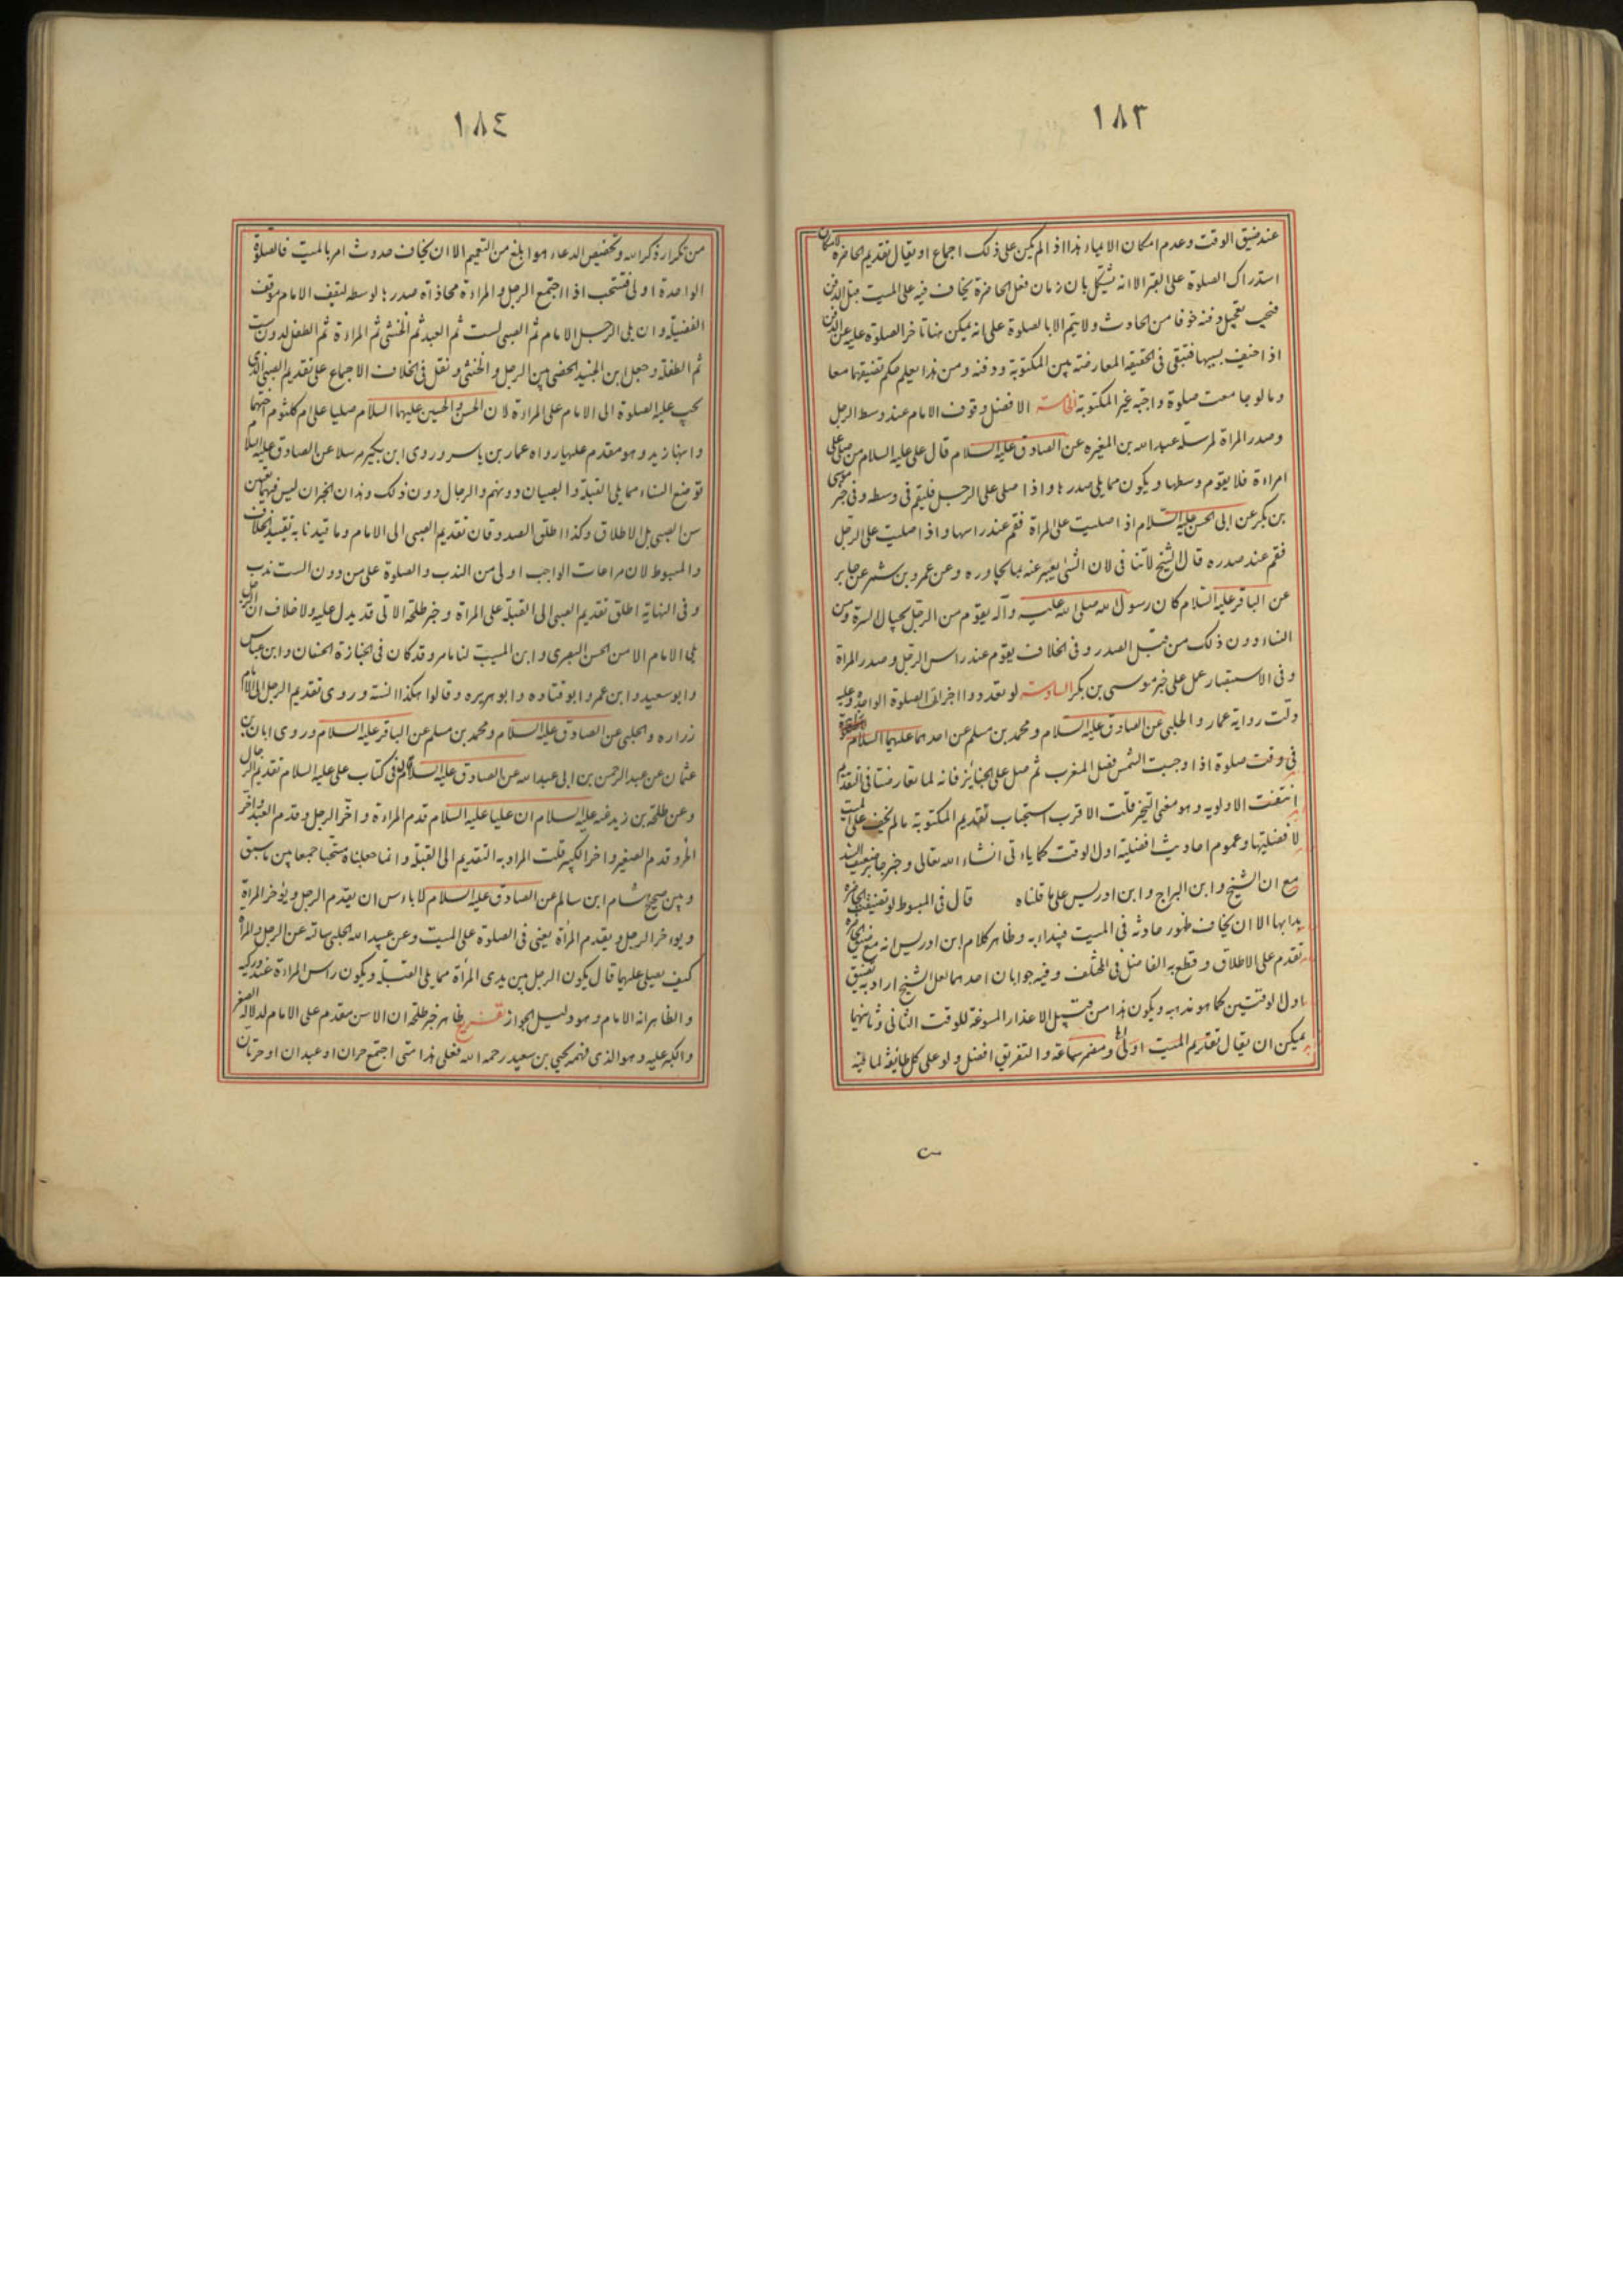 ١٨٣
عند ضيق الوقت وعدم امكان الايماء هذا اذ الم يكن على ذلك اجماع او يقال تقديم الحاضرة لامكان
استدراك الصلوة على القبر الا انه يشكل بان زمان فعل الحاضرة يخاف فيه على الميت قبل الدفن
فيجب تعجيل دفنه خوفا من الحادث ولا يتم الا بالصلوة على انه يمكن هنا تاخر الصلوة عليه عن الدفن
اذا خيف بسببها فتبقى فى الحقيقة المعارضة بين المكتوبة ودفنه ومن هذا يعلم حكم تضيقهما معا
وما لو جامعت صلوة واجبة غير المكتوبة الخامسة الافضل وقوف الامام عند وسط الرجل
وصدر المراة لمرسلة عبدالله بن المغيره عن الصادق عليه السلام قال على عليه السلام من صلى على
امراءة فلا يقوم وسطها ويكون مما يلى صدرها واذا صلى على الرجل فليقم فى وسطه وفى خبر موسى
بن بكر عن ابى الحسن عليه السلام اذ اصليت على المراة فقم عند راسها واذ اصليت على الرجل
فقم عند صدره قال الشيخ لا تنافى لان الشئ يعبر عنه بما يجاوره وعن عمرو بن شمر عن جابر
عن الباقر عليه السلام كان رسول الله صلى الله عليه وآله يقوم من الرجل بحيال السرة ومن
النساء دون ذلك من قبل الصدر وفى الخلاف يقوم عند راس الرجل وصدر المراة
وفى الاستبصار عمل على خبر موسى بن بكر السادسة لو تعددوا اجزات الصلوة الواحدة وعليه
دلت رواية عمار و الحلبى عن الصادق عليه السلام ومحمد بن مسلم عن احدهما عليهما السلام
فى وقت صلوة اذا وجبت الشمس فصل المغرب ثم صل على الجنائز فانه لما تعارضتا فى التقدم
انتفت الاولويه وهو معنى التخير قلت الاقرب استحباب تقديم المكتوبة ما لم يخف على الميت
لا فضليتها وعموم احاديث افضلية اول الوقت كما ياءتى انشاء الله تعالى وخبر جابر ضعيف السند
مع ان الشيخ وابن البراج وابن ادريس على ما قلناه قال فى المبسوط لو تضيقت الحاضرة
بدا بها الا ان يخاف ظهور حادثه فى الميت فيبداء به وظاهر كلام ابن ادريس انه مع ضيق الحاضرة
تقدم على الاطلاق وقطع به الفاضل فى المختلف وفيه جوابان احدهما لعل الشيخ اراد به تضيق
اول الوقتين كما هو مذهبه ويكون هذا من قبيل الاعذار المسوغة للوقت الثانى وثانيهما
يمكن ان يقال تقديم الميت اولى ومضمر سماعة والتفريق افضل ولو على كل طائفة لما فيه
١٨٤
من تكرار ذكر الله وتخصيص الدعاء هو ابلغ من التعميم الا ان يخاف حدوث امر بالميت فالصلوة
الواحدة اولى فتستحب اذا اجتمع الرجل و المراءة محاذاة صدرها لوسطه ليقف الامام موقف
الفضيلة وان يلى الرجل الامام ثم الصبى لست ثم العبد ثم الخنثى ثم المراءة ثم الطفل لدون ست
ثم الطفلة وجعل ابن الجنيد الخصى بين الرجل و الخنثى ونقل فى الخلاف الاجماع على تقديم الصبى الذى
يجب عليه الصلوة الى الامام على المراءة لان الحسن والحسين عليهما السلام صليا على ام كلثوم اختهما
وابنها زيد وهو مقدم عليها رواه عمار بن ياسر وروى ابن بكير مرسلا عن الصادق عليه السلام
توضع النساء مما يلى القبلة والصبيان دونهم والرجال دون ذلك وهذان الخبران ليس فيهما تعيين
سن الصبى بل الاطلاق وكذا اطلق الصدوقان تقديم الصبى الى الامام وما قيدنا به تقييد الخلاف
والمبسوط لان مراعات الواجب اولى من الندب و الصلوة على من دون الست ندب
وفى النهاية اطلق تقديم الصبى الى القبلة على المراة وخبر طلحة الاتى قد يدل عليه ولا خلاف ان الرجل
يلى الامام الا من الحسن البصرى وابن المسيب لنا مامر وقد كان فى الجنازة الحسنان وابن عباس
وابو سعيد وابن عمر وابو قتاده وابو هريره وقالوا هكذا السنة وروى تقديم الرجل الى الامام
زراره والحلبى عن الصادق عليه السلام ومحمد بن مسلم عن الباقر عليه السلام وروى ابان بن
عثمان عن عبد الرحمن بن ابى عبدالله عن الصادق عليه السلام قال فى كتاب على عليه السلام تقديم الرجال
وعن طلحة بن زيد عنه عليه السلام ان عليا عليه السلام قدم المراءة واخر الرجل وقدم العبد واخر
الحر وقدم الصغير واخر الكبير قلت المراد به التقديم الى القبلة وانما جعلناه مستحبا جمعا بين ما سبق
وبين صحيح هشام ابن سالم عن الصادق عليه السلام لاباءس ان يقدم الرجل ويؤخر المراة
ويوءخر الرجل ويقدم المراة يعنى فى الصلوة على الميت وعن عبيد الله الحلبى سالته عن الرجل والمراة
كيف يصلى عليهما قال يكون الرجل بين يدى المراة مما يلى القبلة ويكون راس المراءة عند وركيه
والظاهر انه الامام وهو دليل الجواز تفريع ظاهر خبر طلحة ان الاسن مقدم على الامام لدلالة الصغر
والكبر عليه وهو الذى فهمه يحيى بن سعيد رحمه الله فعلى هذا متى اجتمع حران او عبدان او حرتان